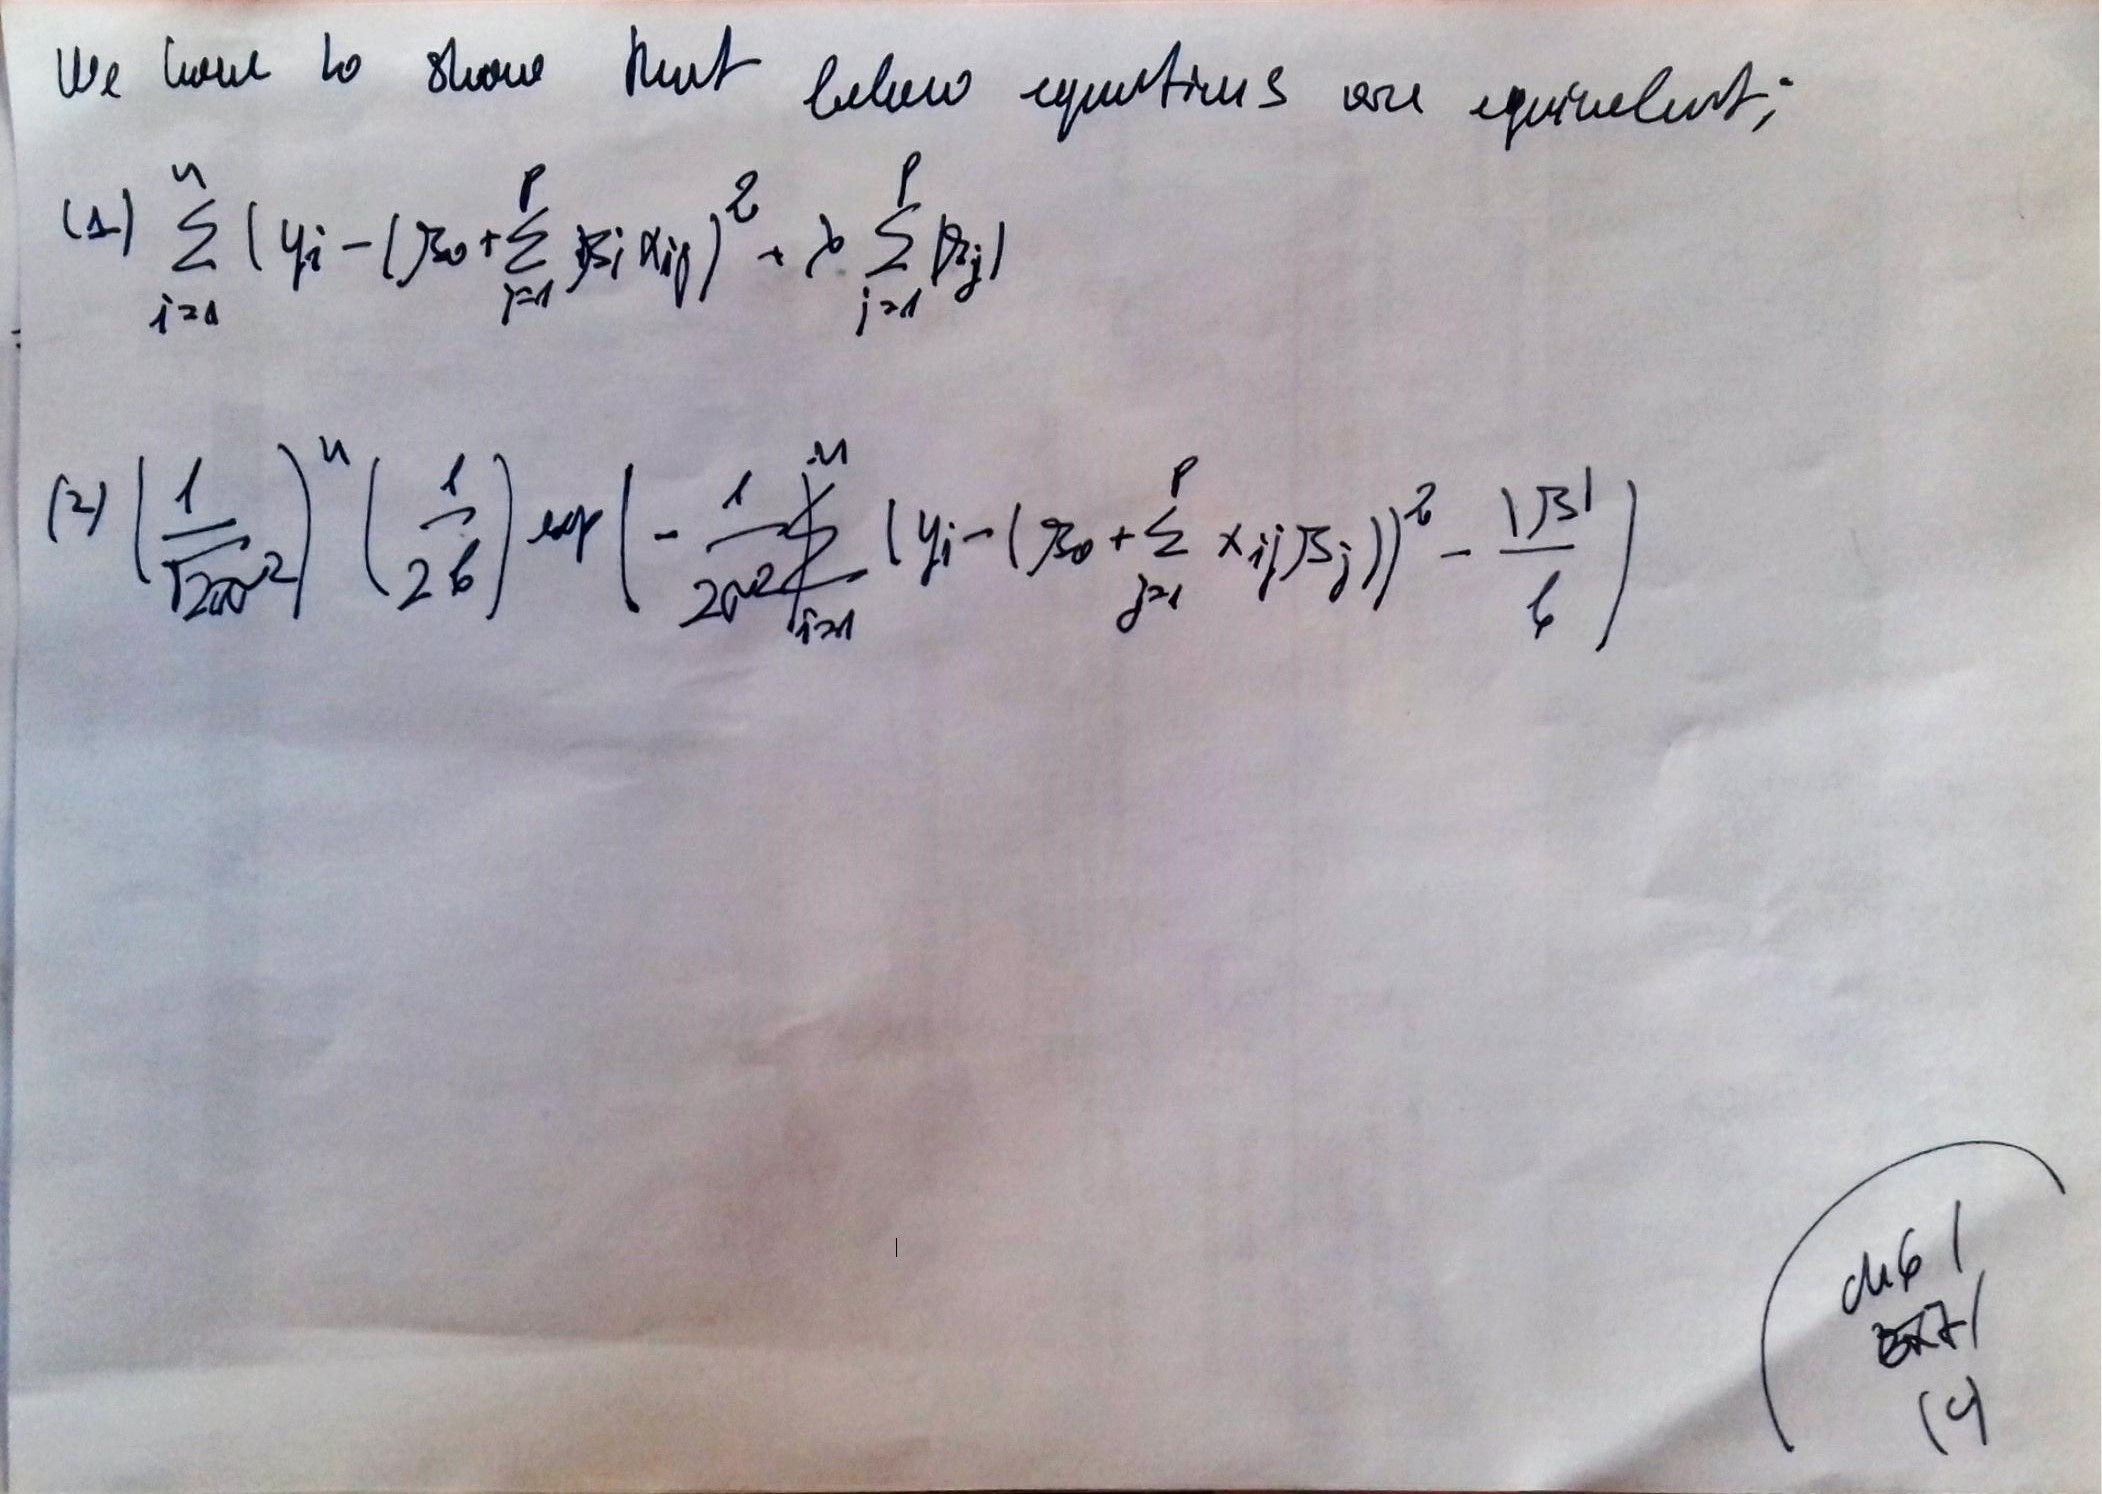 We have to show that below equations are equivalent;
(1) \sum_{i=1}^{n} (y_i - (β_0 + \sum_{j=1}^{p} β_j x_{ij})^2 + λ \sum_{j=1}^{p} |β_j|
(2) (\frac{1}{\sqrt{2πσ^2}})^n (\frac{1}{2b}) exp(-\frac{1}{2σ^2} \sum_{i=1}^{n} (y_i - (β_0 + \sum_{j=1}^{p} x_{ij} β_j))^2 - \frac{|β|}{b})
ch6 |
(4)